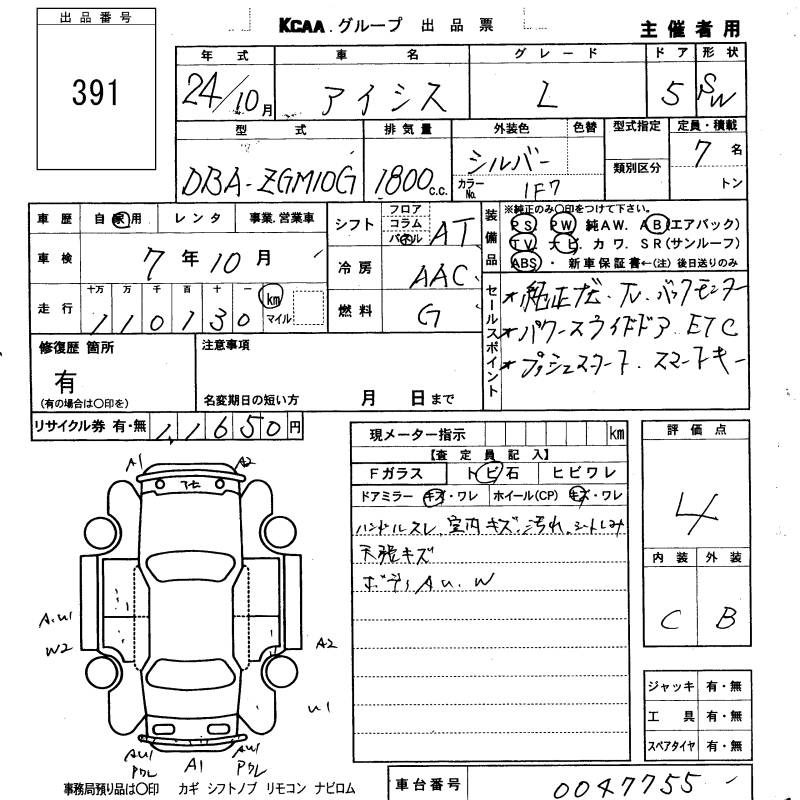 出品番号
391
KCAA.グループ 出品票
主催者用
年式 車名 グレード ドア 形状
24/10月 アイシス L 5 SW
型式 排気量 外装色 色替 型式指定 定員・積載
DBA-ZGM10G 1800c.c. シルバー 7名
カラーNo. 1F7 類別区分 トン
車歴 自家用 レンタ 事業.営業車
シフト フロア コラム パネル AT
装備品 ※純正のみ〇印をつけて下さい。
PS. PW 純AW. AB(エアバック)
TV. ナビ カワ. SR(サンルーフ)
ABS・ 新車保証書←(注)後日送りのみ
車検 7年10月
冷房 AAC
走行 十万 万 千 百 十 一 km マイル
110130
燃料 G
セールスポイント
*純正ナビ.TV.バックモニター
*パワースライドドア ETC
*プッシュスタート.スマートキー
修復歴 箇所
有
(有の場合は〇印を)
注意事項
名変期日の短い方 月 日まで
リサイクル券 有・無 11650円
現メーター指示 km
【査定員記入】
Fガラス トビ石 ヒビワレ
ドアミラー キズ・ワレ ホイール(CP) キズ・ワレ
ハンドルスレ、室内キズ、汚れ、シートしみ
天張キズ
ボディAU.W
評価点
4
内装 外装
C B
A1 A2
A.U1
W2
A2
U1
AU1 PワレA1 AU1 Pワレ
ジャッキ 有・無
工具 有・無
スペアタイヤ 有・無
事務局預り品は〇印 カギ シフトノブ リモコン ナビロム
車台番号 0047755